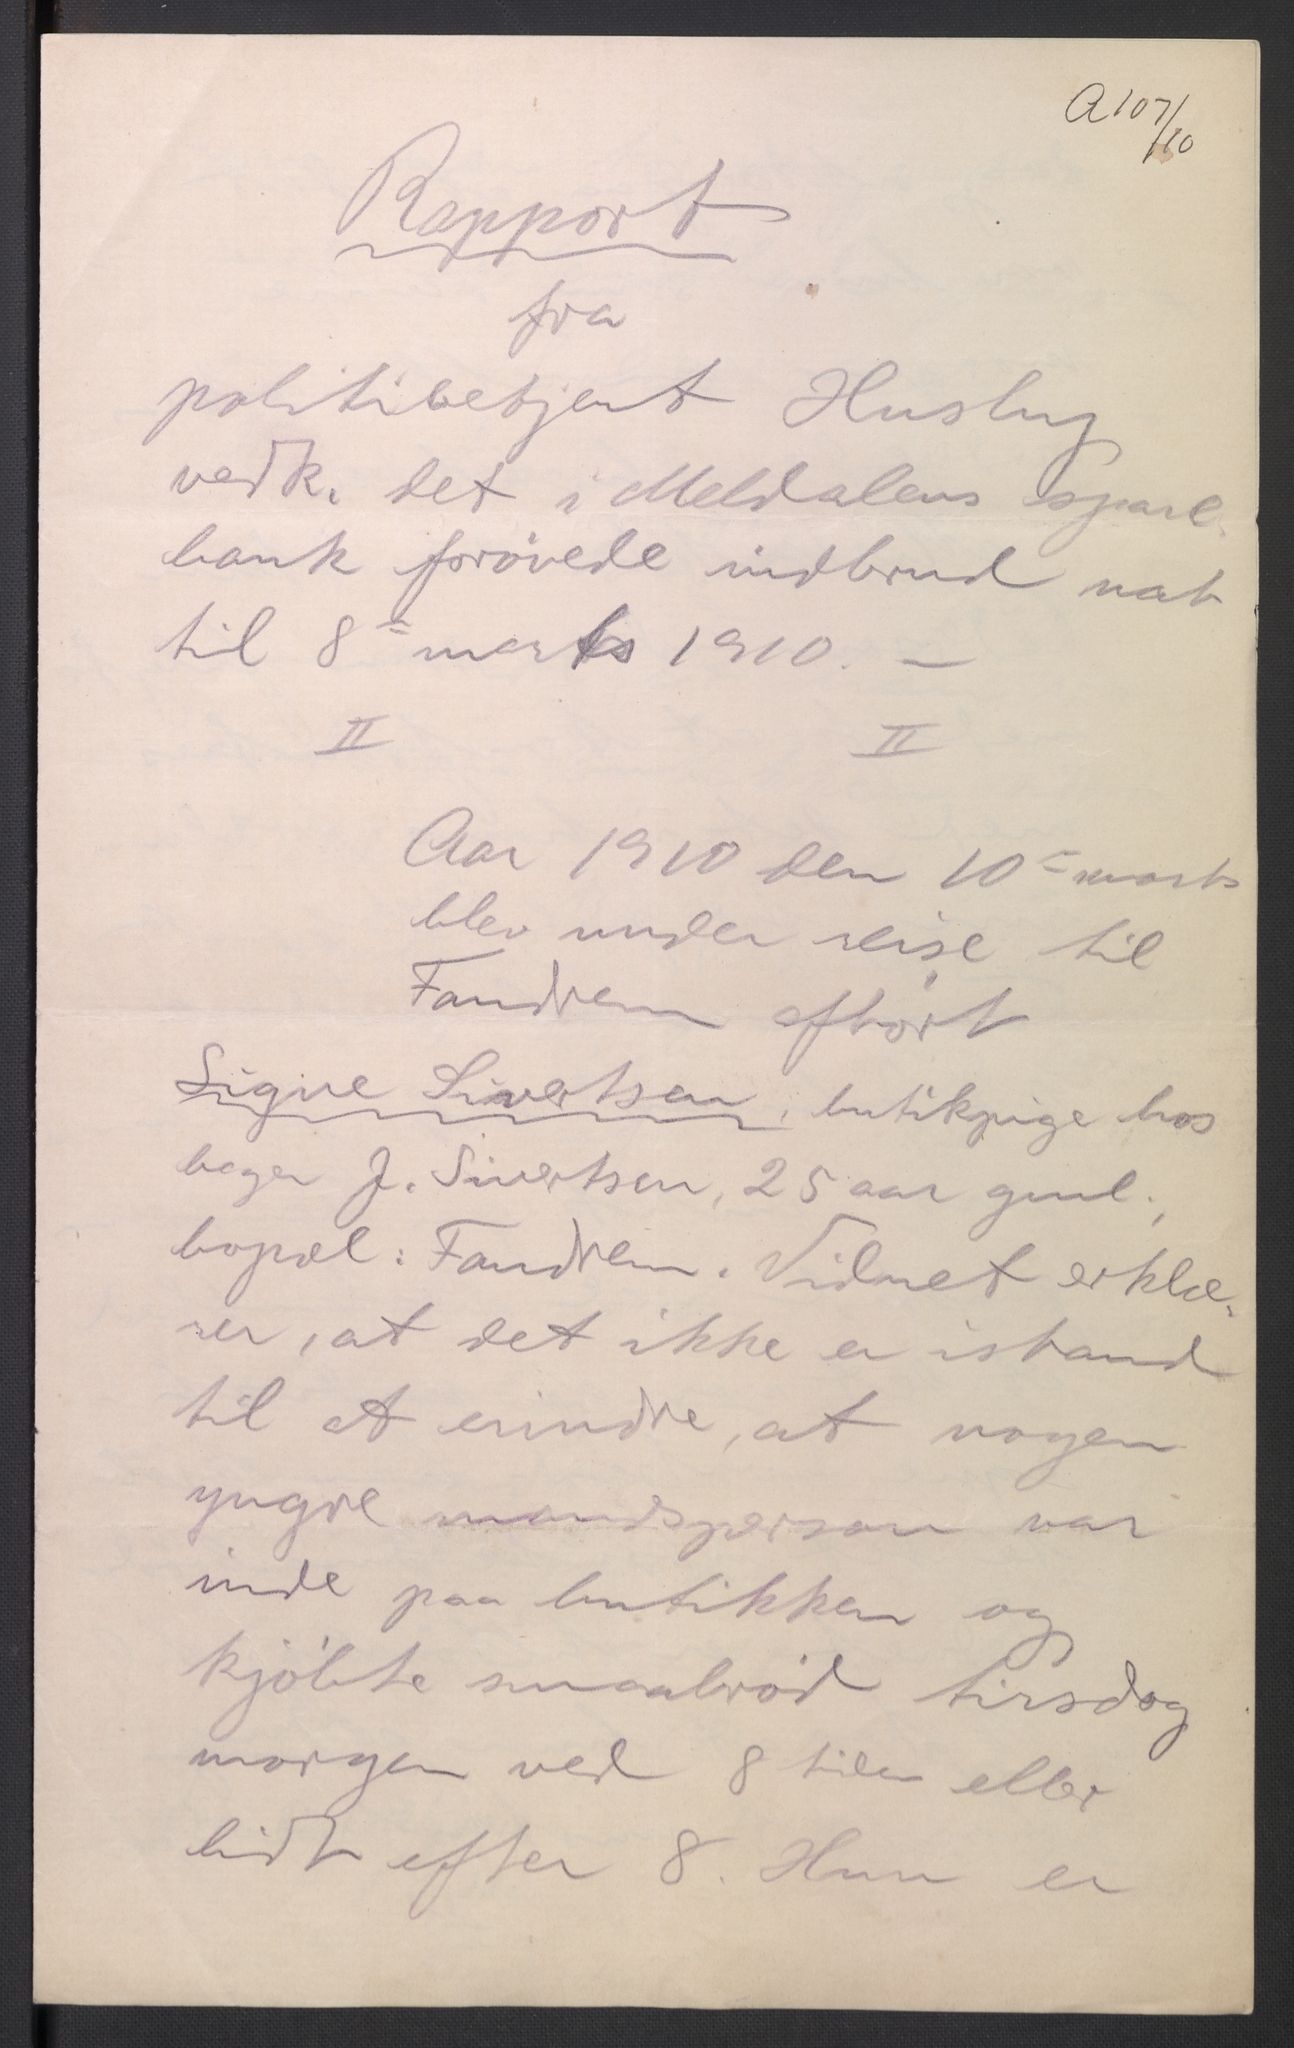 A 107/10
Rapport
fra
politibetjent Husby
vedk. det i Meldalens spare-
bank forøvede indbrud nat
til 8= marts 1910. —
II II
Aar 1910 den 10= marts
blev under reise til
Fandrem afhørt
Signe Sivertsen, butikpige hos
bager J. Sivertsen, 25 aar gml.,
bopæl: Fandrem. Vidnet erklæ-
rer, at det ikke er istand
til at erindre, at nogen
yngre mandsperson var
inde paa butikken og
kjøbte smaabrød tirsdag
morgen ved 8 tiden eller
lidt efter 8. Hun er